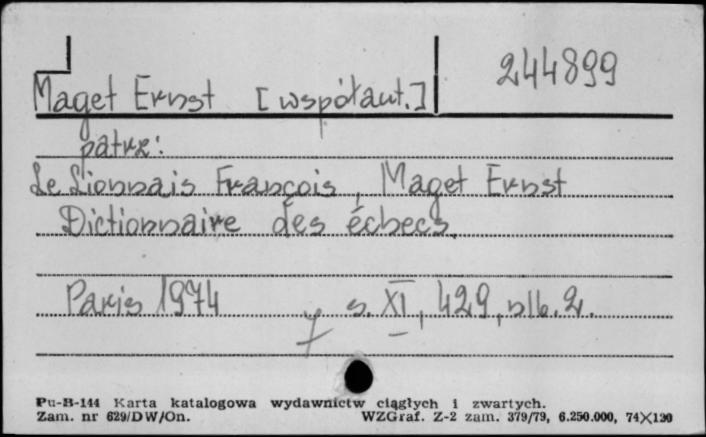 244899
Maget Ernst [współaut.]
patrz:
Le Lionnais François, Maget Ernst
Dictionnaire des échecs.
Paris 1974 s. XI, 429, nlb. 2.
Pu-B-144 Karta katalogowa wydawnictw ciągłych i zwartych.
Zam. nr 629/DW/On. WZGraf. Z-2 zam. 379/79, 6.250.000, 74X120